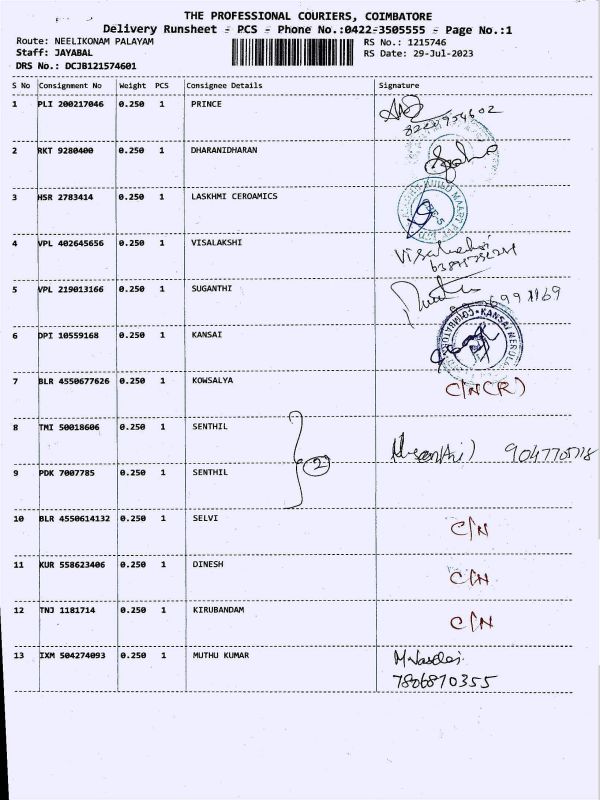 THE PROFESSIONAL COURIERS, COIMBATORE
Delivery Runsheet - PCS - Phone No.:0422-3505555 - Page No.:1
Route: NEELIKONAM PALAYAM RS No.: 1215746
Staff: JAYABAL RS Date: 29-Jul-2023
DRS No.: DCJB121574601
S No Consignment No Weight PCS Consignee Details Signature
1 PLI 200217046 0.250 1 PRINCE
2 RKT 9280400 0.250 1 DHARANIDHARAN
3 HSR 2783414 0.250 1 LASKHMI CEROAMICS
4 VPL 402645656 0.250 1 VISALAKSHI Visalakshi
5 VPL 219013166 0.250 1 SUGANTHI
6 DPI 10559168 0.250 1 KANSAI KANSAI
7 BLR 4550677626 0.250 1 KOWSALYA C/N(R)
8 TMI 50018606 0.250 1 SENTHIL
2
9 PDK 7007785 0.250 1 SENTHIL
10 BLR 4550614132 0.250 1 SELVI C/N
11 KUR 558623406 0.250 1 DINESH C/N
12 TNJ 1181714 0.250 1 KIRUBANDAM C/N
13 IXM 504274093 0.250 1 MUTHU KUMAR
7806870355